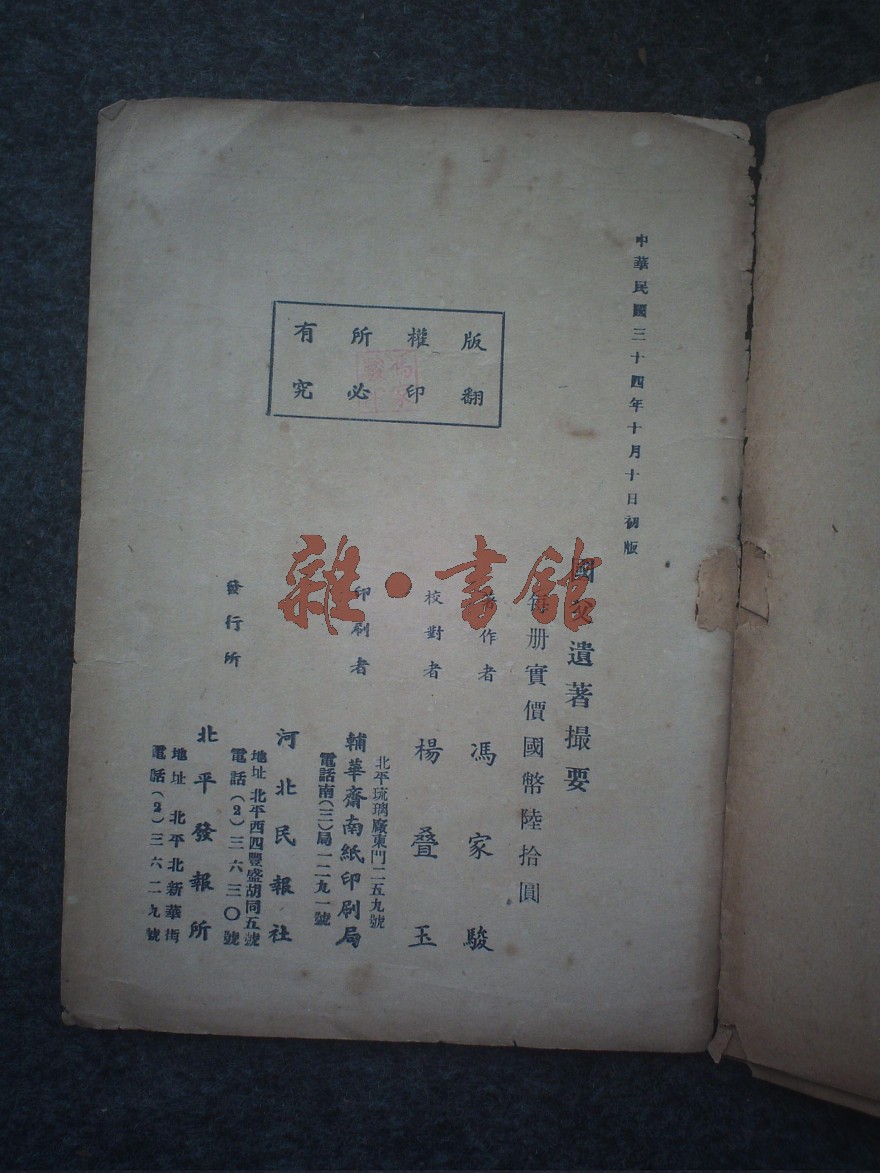 中華民國三十四年十月十日初版
國父遺著撮要
每册實價國幣陸拾圓
作者 馮家駿
校對者 楊叠玉
印刷者
北平琉璃廠東門二五九號
輔華齋南紙印刷局
電話南(三)局一二九一號
發行所
河北民報社
地址 北平西四豐盛胡同五號
電話(2)三六三〇號
北平發報所
地址 北平北新華街
電話(2)三六二九號
版權所有
翻印必究
雜·書館